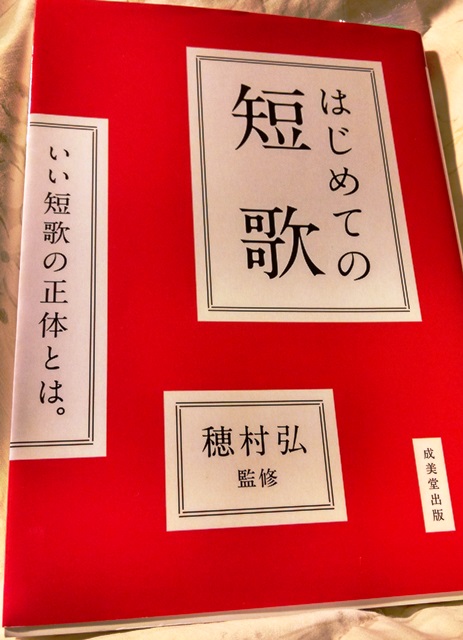 はじめての
短歌
いい短歌の正体とは。
穂村弘
監修
成美堂出版